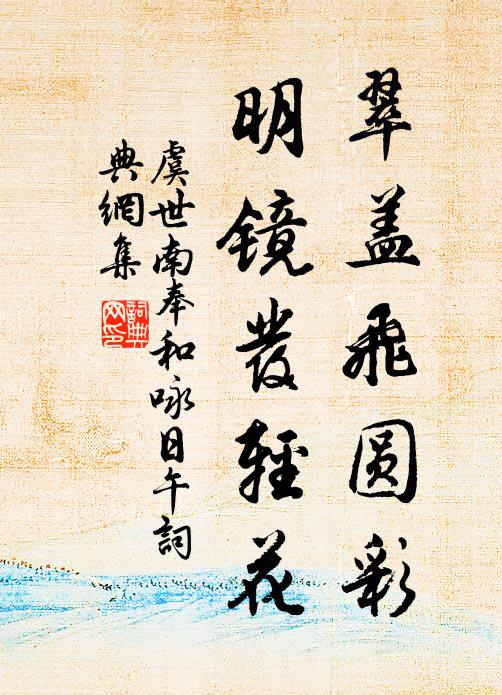 翠盖飛圆彩
明镜發輕花
虞世南奉和咏日午詞
典網集
詞典网印